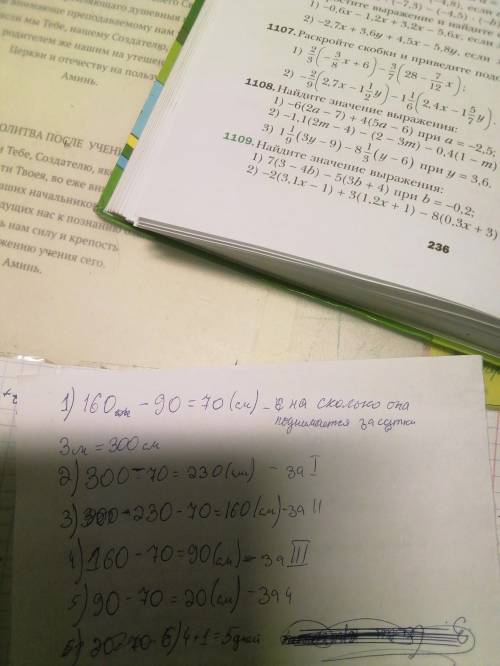 ающего душевныя
внимающе преподаваемому нам
ли мы Тебе, нашему Создателю,
родителем же нашим на утешен
Церкви и отечеству на пользу
Аминь.
ЛИТВА ПОСЛЕ УЧЕН
Тебе, Создателю, як
ти Твоея, во еже вни
наших начальников
ведущих нас к познанию
нам силу и крепость
жению учения сего.
Аминь.
1) –0,6x – 1,2x + 3,2x – 5,6x, если
2) –2,7x + 3,6y + 4,5x – 5,8y, если
1107. Раскройте скобки и приведите под
1) 2/3(–3/4x + 6) – 3/7(28 – 7/12x);
2) –2/9(2,7x – 1 1/2y) – 1 1/6(2,4x – 1 5/7y).
1108. Найдите значение выражения:
1) –6(2a – 7) + 4(5a – 6) при a = –2,5;
2) –1,1(2m – 4) – (2 – 3m) – 0,4(1 – m)
3) 1 1/9(3y – 9) – 8 1/3(y – 6) при y = 3,6.
1109. Найдите значение выражения:
1) 7(3 – 4b) – 5(3b + 4) при b = –0,2;
2) –2(3,1x – 1) + 3(1,2x + 1) – 8(0,3x + 3)
236
1) 160 – 90 = 70 (см) – на сколько она
поднимается за сутки
3м = 300 см
2) 300 – 70 = 230 (см) – за I
3) 230 – 70 = 160 (см) – за II
4) 160 – 70 = 90 (см) – за III
5) 90 – 70 = 20 (см) – за 4
6) 4 + 1 = 5 дней